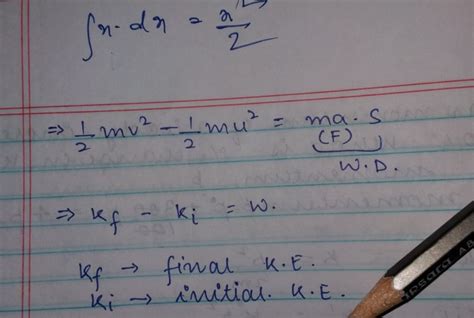 ∫x·dx = x²/2
⇒ 1/2 mv² − 1/2 mu² = ma·s
(F)
W.D.
⇒ Kf − Ki = W.
Kf → final K.E.
Ki → initial K.E.
apsara